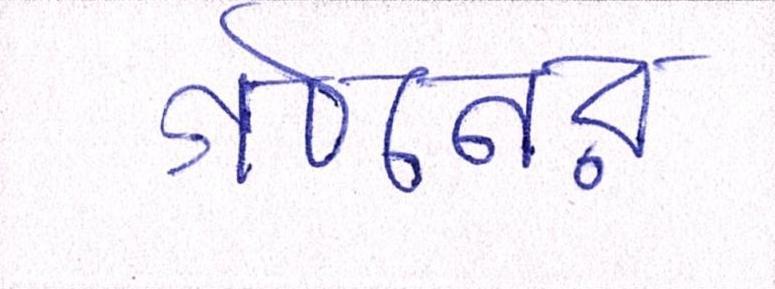 গঠনের